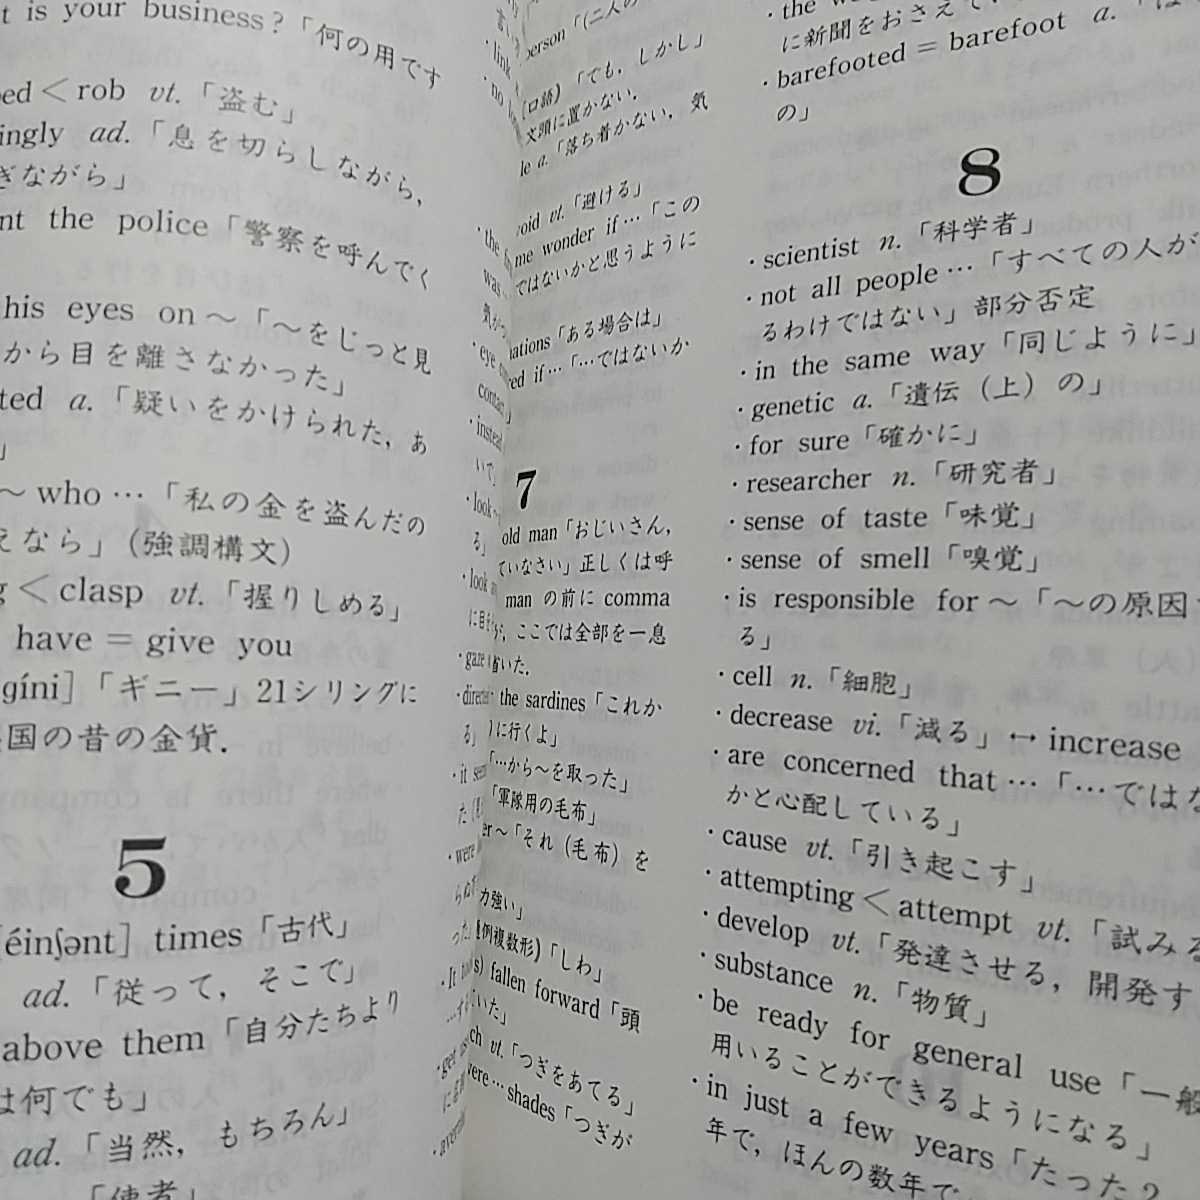 t is your business?「何の用です
bed < rob vt.「盗む」
ingly ad.「息を切らしながら,
ぎながら」
nt the police「警察を呼んでく
his eyes on ~「~をじっと見
から目を離さなかった」
ted a.「疑いをかけられた, あ
」
~ who …「私の金を盗んだの
えなら」(強調構文)
g < clasp vt.「握りしめる」
have = give you
gíni]「ギニー」21シリングに
国の昔の金貨.
5
[éinʃənt] times「古代」
ad.「従って, そこで」
above them「自分たちより
は何でも」
ad.「当然, もちろん」
「使者」
・link
・no
・the
was
気が
・eye
contact
・instead
いて
・look
る」
・look
・gaze
・direct
る」
・it see
・were
・It
・get
person「(二人の
(口語)「でも, しかし」
文頭に置かない.
le a.「落ち着かない, 気
void vt.「避ける」
me wonder if …「この
ではないかと思うように
ations「ある場合は」
red if …「…ではないか
」
7
old man「おじいさん,
ていなさい」正しくは呼
man の前に comma
が, ここでは全部を一息
書いた.
the sardines「これか
)に行くよ」
「…から~を取った」
「軍隊用の毛布」
er ~「それ (毛布) を
力強い」
例複数形)「しわ」
s) fallen forward「頭
いた」
ch vt.「つぎをあてる」
were … shades「つぎが
・the
に新聞をおさえて
・barefooted = barefoot a.「は
の」
8
・scientist n.「科学者」
・not all people …「すべての人が
るわけではない」部分否定
・in the same way「同じように」
・genetic a.「遺伝 (上) の」
・for sure「確かに」
・researcher n.「研究者」
・sense of taste「味覚」
・sense of smell「嗅覚」
・is responsible for ~「~の原因
る」
・cell n.「細胞」
・decrease vi.「減る」↔ increase
・are concerned that …「…ではな
かと心配している」
・cause vt.「引き起こす」
・attempting < attempt vt.「試みる
・develop vt.「発達させる, 開発す
・substance n.「物質」
・be ready for general use「一般
用いることができるようになる」
・in just a few years「たった2
年で, ほんの数年で